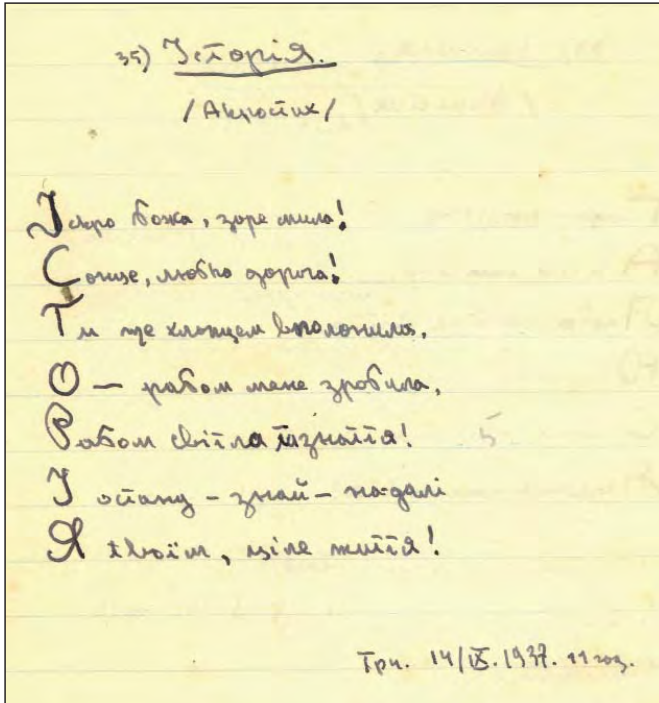 35) Історія.
/Акростих/
Іскро божа, зоре мила!
Сонце, любко дорога!
Ти ще хлопцем вполонила,
О — рабом мене зробила,
Рабом світла ізнаття!
І остану – знай – на-далі
Я твоїм, ціле життя!
Трч. 14/IX. 1937. 11 год.